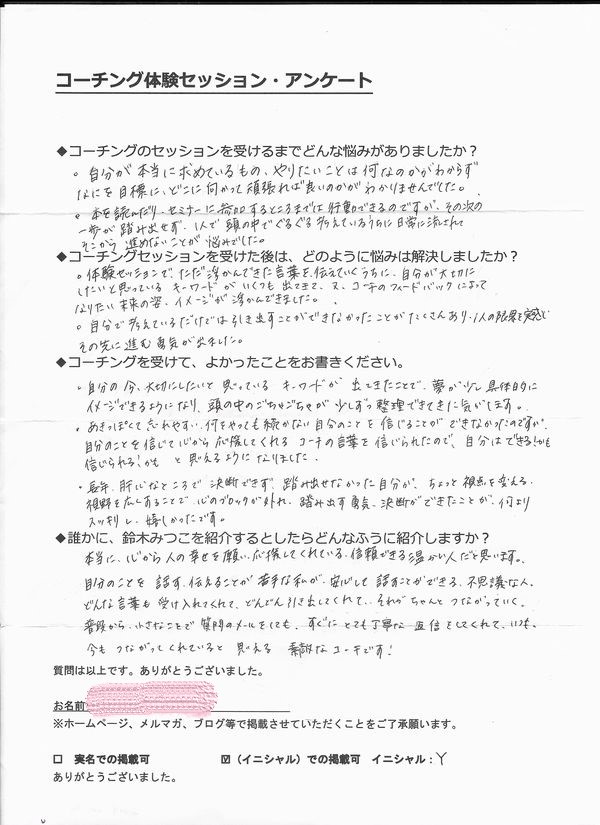 コーチング体験セッション・アンケート
◆コーチングのセッションを受けるまでどんな悩みがありましたか？
。自分が本当に求めているもの、やりたいことは何なのかがわからず
なにを目標に、どこに向かって頑張れば良いのかがわかりませんでした。
。本を読んだり、セミナーに参加するところまでは行動できるのですが、その次の
一歩が踏み出せず、1人で頭の中でぐるぐる考えているうちに日常に流されて
そこから進めないことが悩みでした。
◆コーチングセッションを受けた後は、どのように悩みは解決しましたか？
。体験セッションで、ただ浮かんできた言葉を伝えていくうちに、自分が大切に
したいと思っているキーワードがいくつも出てきて、又、コーチのフィードバックによって
なりたい未来の姿、イメージが浮かんできました。
。自分で考えているだけでは引き出すことができなかったことがたくさんあり、1人の限界を実感と
その先に進む勇気が出ました。
◆コーチングを受けて、よかったことをお書きください。
・自分の今、大切にしたいと思っているキーワードが出てきたことで、夢が少し具体的に
イメージできるようになり、頭の中のごちゃごちゃが少しずつ整理できてきた気がします。
・あきっぽくて忘れやすい、何をやっても続かない自分のことを信じることができなかったのですが、
自分のことを信じて心から応援してくれるコーチの言葉を信じられたので、自分はできる！かも
信じられる！かも と思えるようになりました。
・長年、肝心なところで決断できず、踏み出せなかった自分が、ちょっと視点を変える、
視野を広くすることで、心のブロックが外れ、踏み出す勇気、決断ができたことが、何より
スッキリし、嬉しかったです。
◆誰かに、鈴木みつこを紹介するとしたらどんなふうに紹介しますか？
本当に、心から人の幸せを願い、応援してくれている、信頼できる温かい人だと思います。
自分のことを話す、伝えることが苦手な私が、安心して話すことができる、不思議な人。
どんな言葉も受け入れてくれて、どんどん引き出してくれて、それがちゃんとつながっていく。
普段から、小さなことで質問のメールをしても、すぐにとても丁寧な返信をしてくれて、いつも、
今もつながってくれていると思える 素敵なコーチです！
質問は以上です。ありがとうございました。
お名前
※ホームページ、メルマガ、ブログ等で掲載させていただくことをご了承願います。
□ 実名での掲載可 ☑（イニシャル）での掲載可 イニシャル：Y
ありがとうございました。